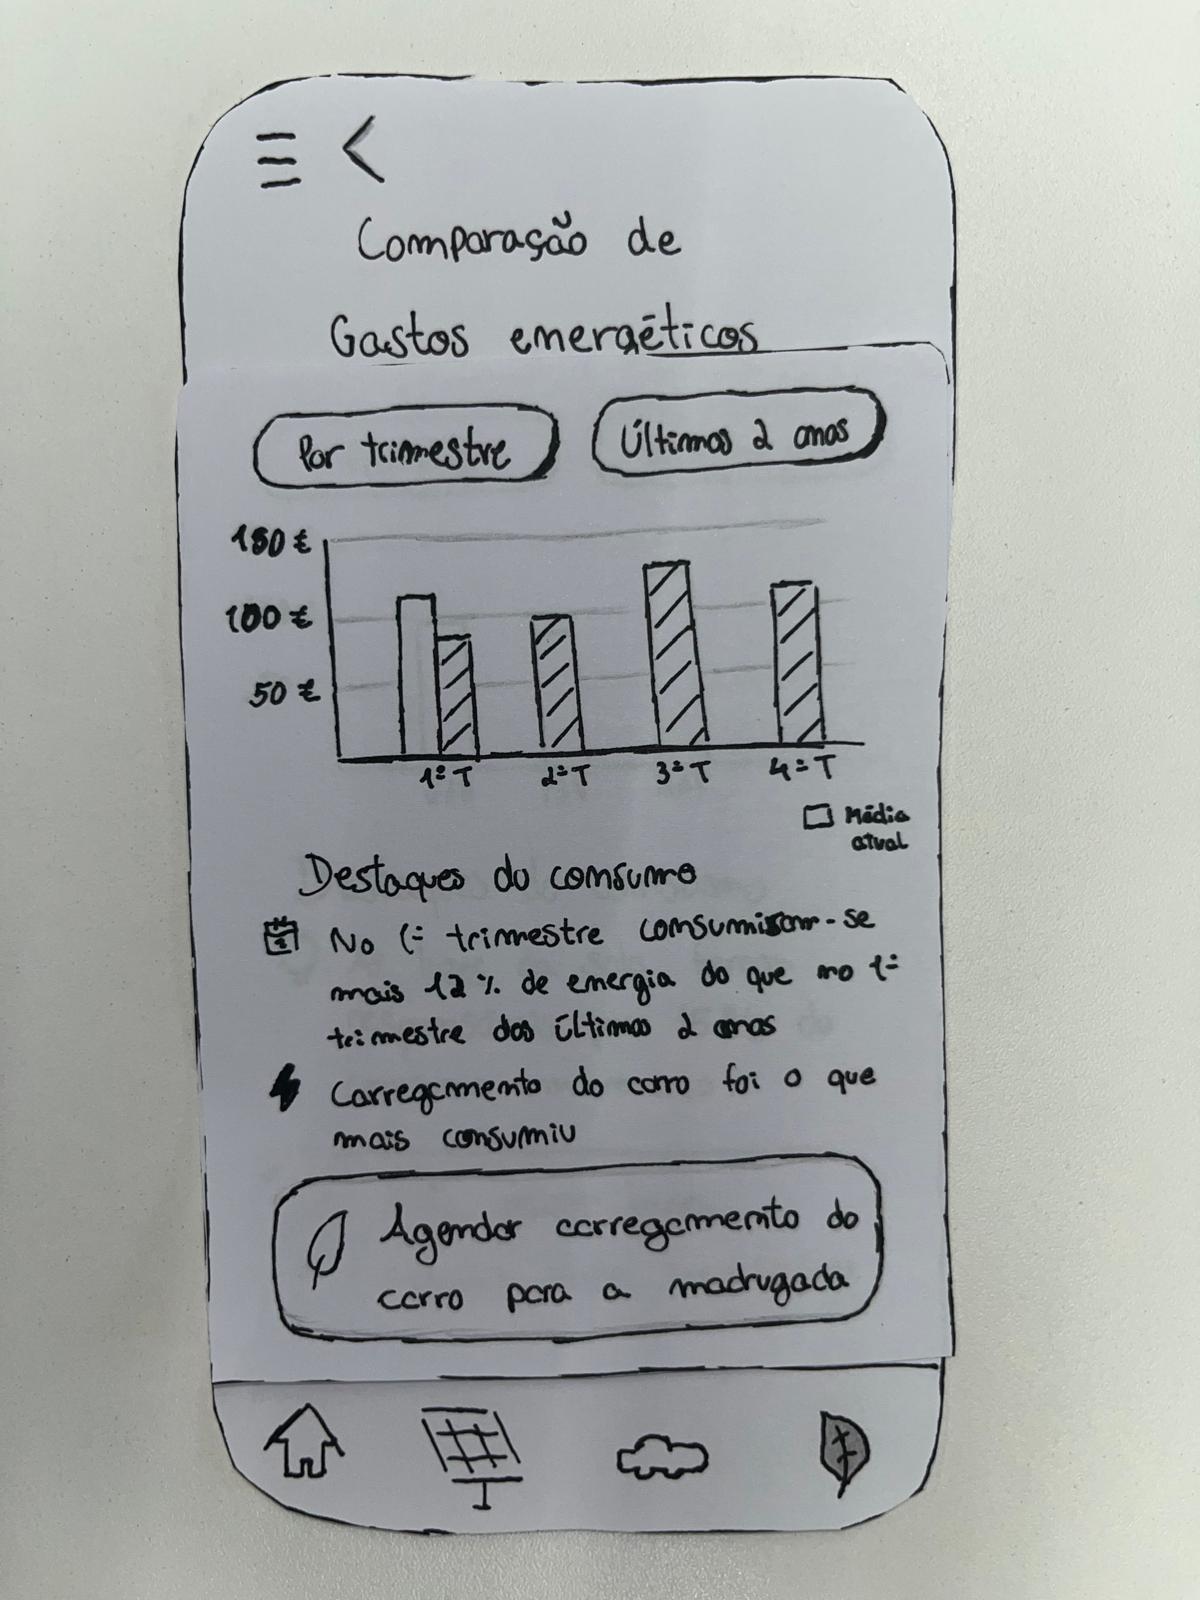 Comparação de
Gastos energéticos
Por trimestre
Últimos 2 anos
150 €
100 €
50 €
1º T
2º T
3º T
4º T
Média
atual
Destaques do consumo
No 1º trimestre consumiram-se
mais 12 % de energia do que no 1º
trimestre dos últimos 2 anos
Carregamento do carro foi o que
mais consumiu
Agendar carregamento do
carro para a madrugada